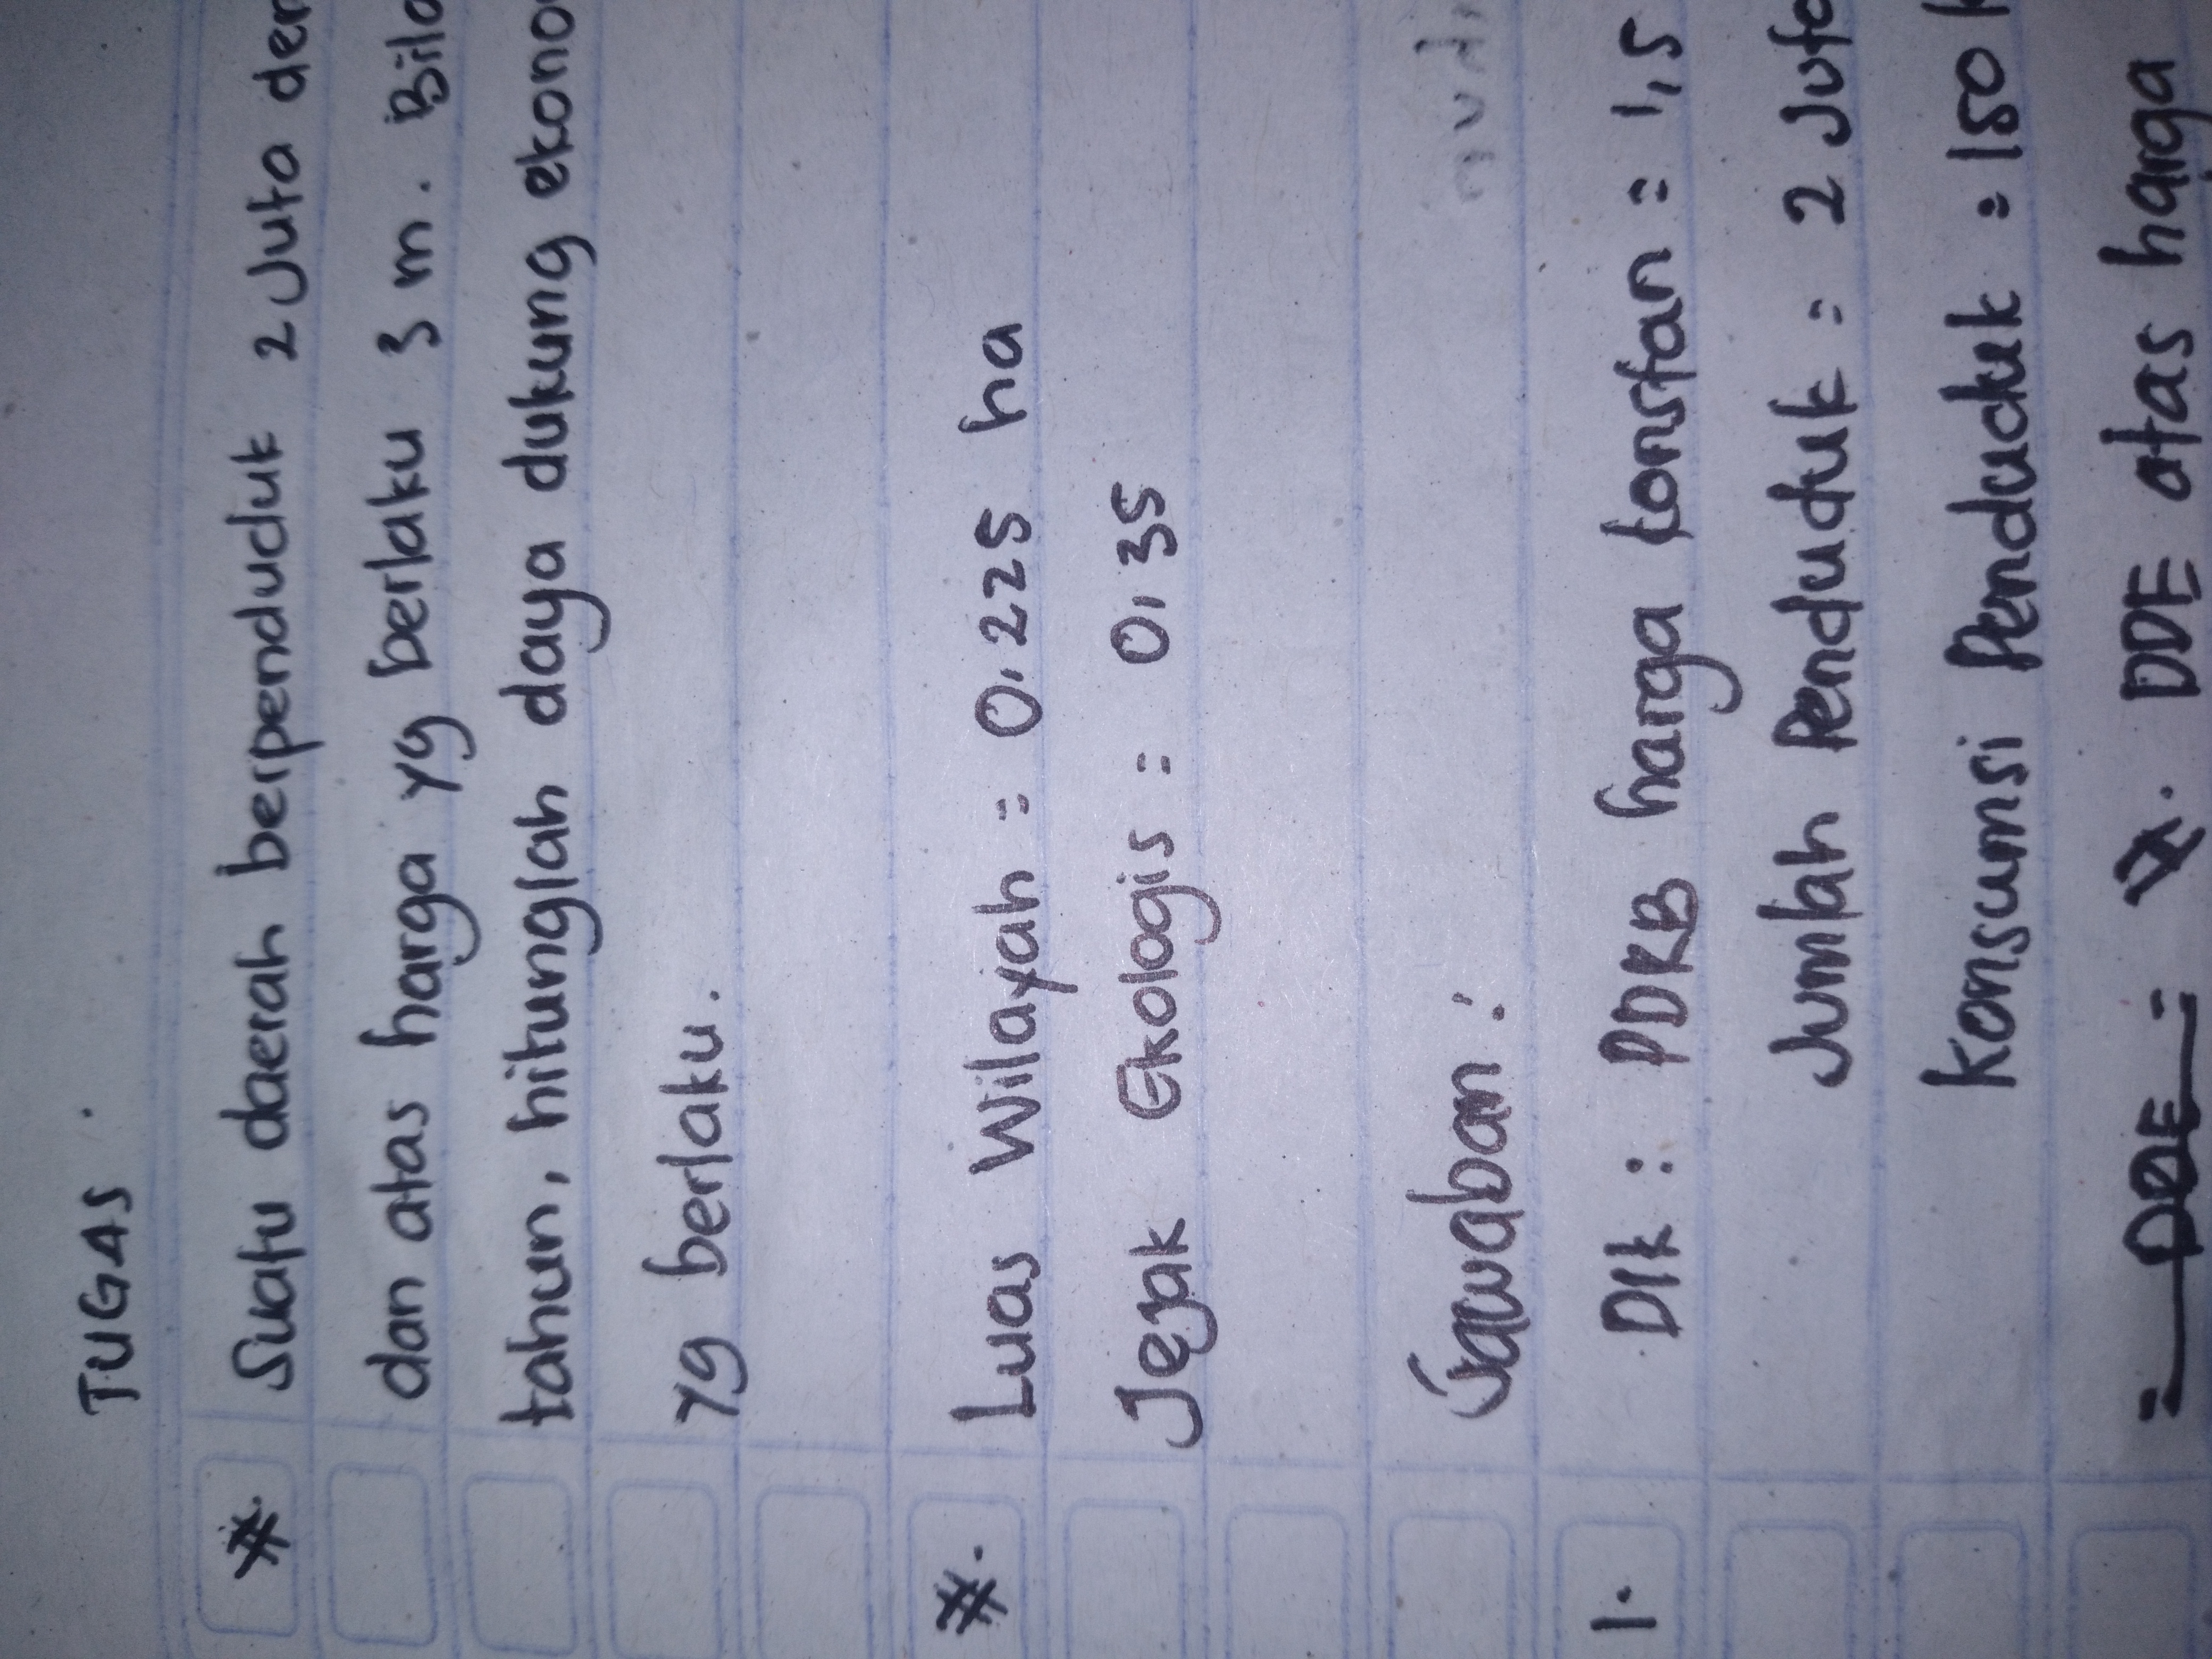 TUGAS
Suatu daerah berpenduduk 2 Juta
dan atas harga yg berlaku 3 m. Bila
tahun, hitunglah daya dukung ekono
yg berlaku.
Luas Wilayah = 0,225 ha
Jejak Ekologis = 0,35
Jawaban :
1. Dik : PDRB harga konstan = 1,5
Jumlah Penduduk = 2 Juta
Konsumsi Penduduk = 150
= DDE = DDE atas harga